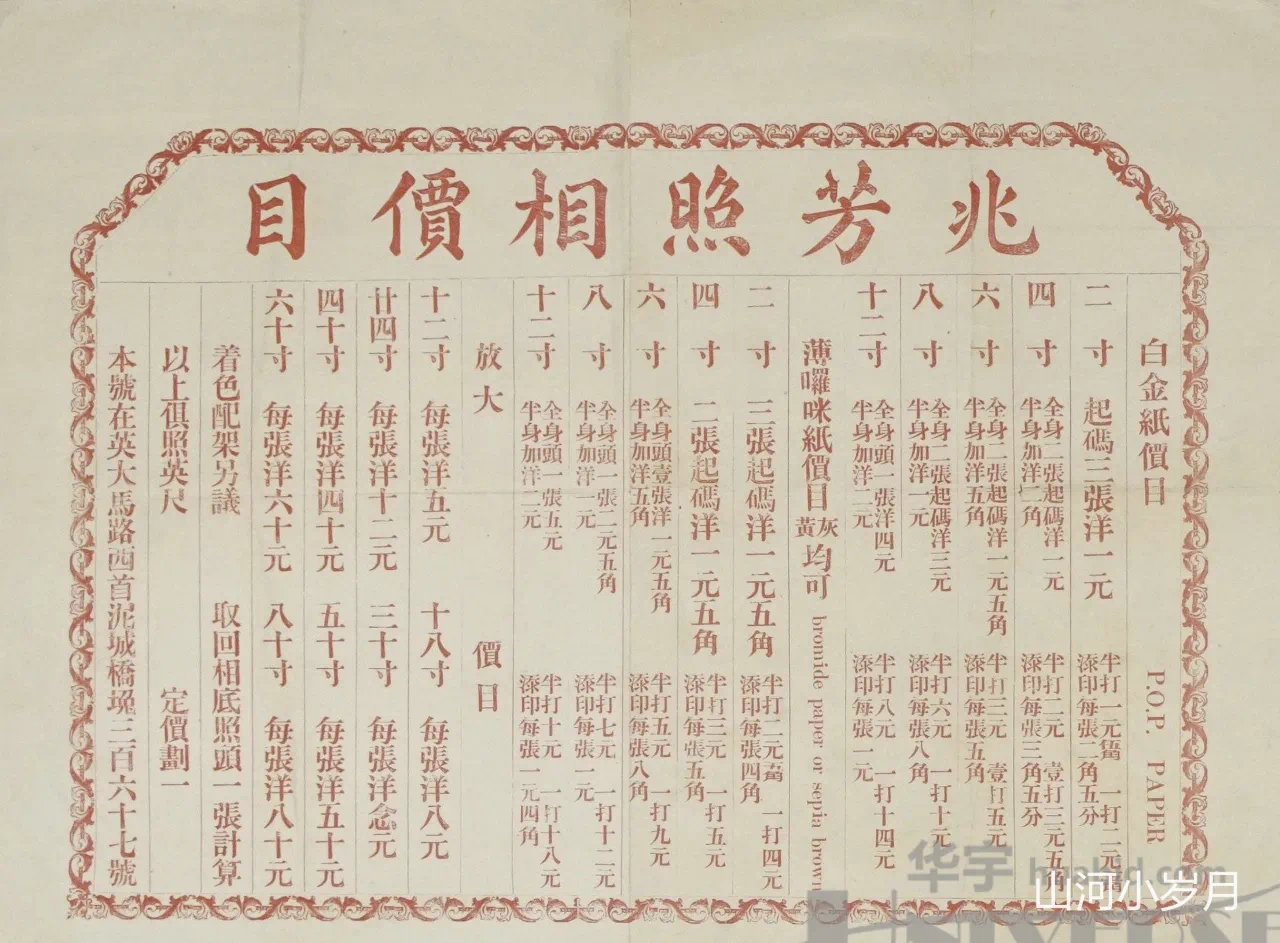 兆芳照相價目
白金紙價目 P.O.P. PAPER
二寸 起碼三張洋一元 半打一元 一打二元
添印每張二角五分
四寸 全身二張起碼洋一元 半打二元 壹打三元五角
半身加洋二角 添印每張三角五分
六寸 全身二張起碼洋一元五角 半打三元 壹打五元
半身加洋五角 添印每張五角
八寸 全身二張起碼洋三元 半打六元 一打十元
半身加洋一元 添印每張八角
十二寸 全身頭一張洋四元 半打八元 一打十四元
半身加洋二元 添印每張一元
薄囉咪紙價目 灰黃均可 bromide paper or sepia brown
二寸 三張起碼洋一元五角 半打二元 一打四元
添印每張四角
四寸 二張起碼洋一元五角 半打三元 一打五元
添印每張五角
六寸 全身頭壹張洋一元五角 半打五元 一打九元
半身加洋五角 添印每張八角
八寸 全身頭一張二元五角 半打七元 一打十二元
半身加洋一元 添印每張一元
十二寸 全身頭一張五元 半打十元 一打十八元
半身加洋二元 添印每張一元四角
放大 價目
十二寸 每張洋五元 十八寸 每張洋八元
廿四寸 每張洋十二元 三十寸 每張洋念元
四十寸 每張洋四十元 五十寸 每張洋五十元
六十寸 每張洋六十元 八十寸 每張洋八十元
着色配架另議 取回相底照頭一張計算
以上俱照英尺 定價劃一
本號在英大馬路西首泥城橋堍三百六十七號
华宇
山河小岁月